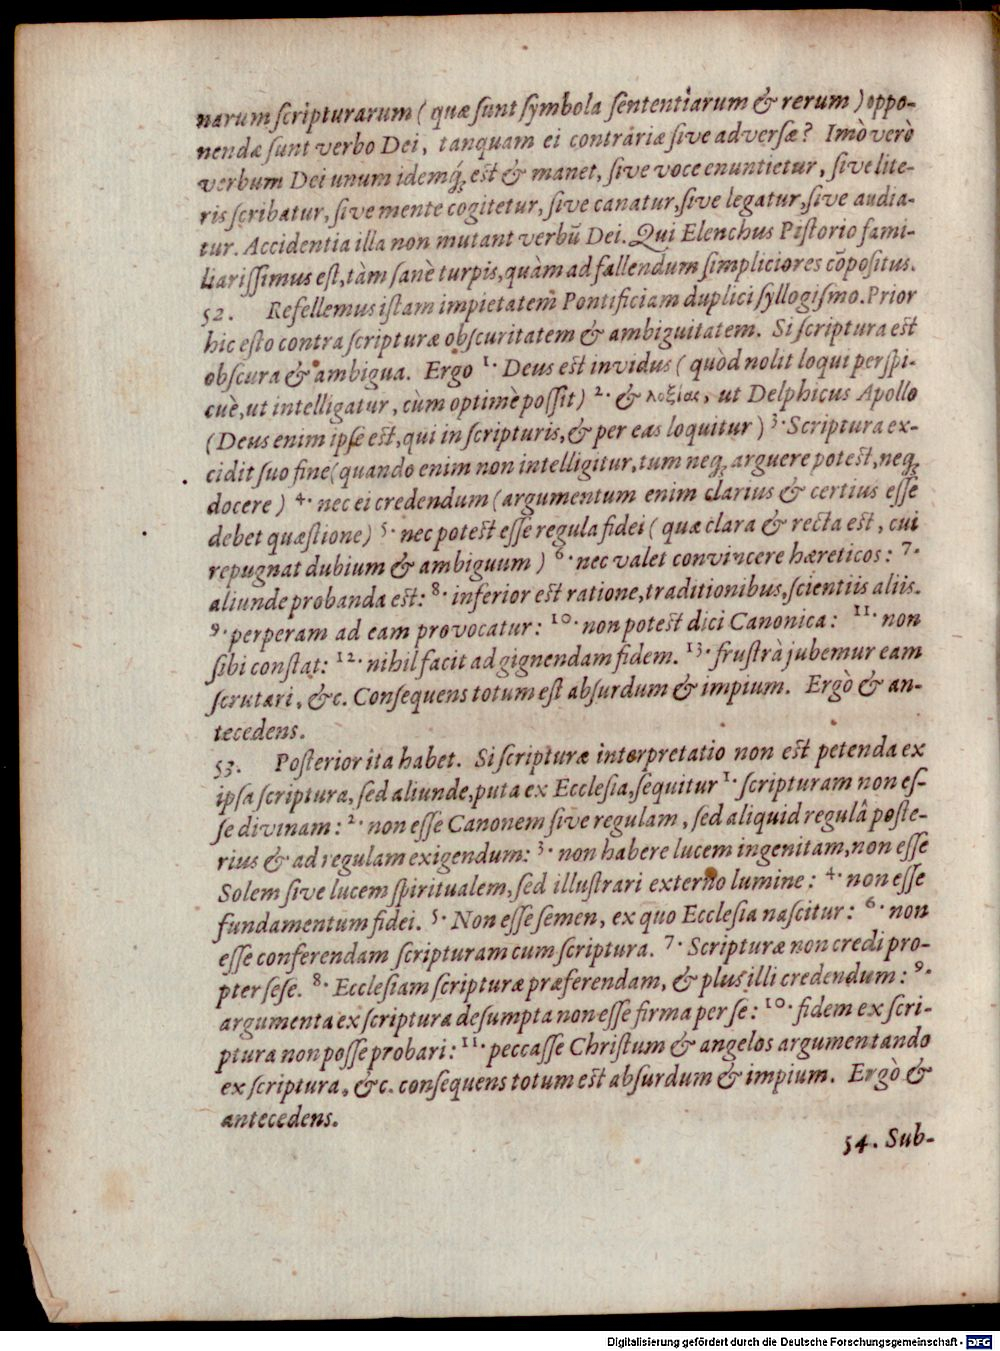 narum ſcripturarum ( quæ ſunt ſymbola ſententiarum & rerum ) oppo-
nendæ ſunt verbo Dei, tanquam ei contrariæ ſive adverſæ? Imò verò
verbum Dei unum idemq́; eſt & manet, ſive voce enuntietur, ſive lite-
ris ſcribatur, ſive mente cogitetur, ſive canatur, ſive legatur, ſive audia-
tur. Accidentia illa non mutant verbū Dei. Qui Elenchus Piſtorio fami-
liariſſimus eſt, tàm ſanè turpis, quàm ad fallendum ſimpliciores cōpoſitus.
52. Refellemus iſtam impietatem Pontificiam duplici ſyllogiſmo. Prior
hic eſto contra ſcripturæ obſcuritatem & ambiguitatem. Si ſcriptura eſt
obſcura & ambigua. Ergo 1. Deus eſt invidus ( quòd nolit loqui perſpi-
cuè, ut intelligatur, cùm optimè poſſit ) 2. & λοξίας, ut Delphicus Apollo
( Deus enim ipſe eſt, qui in ſcripturis, & per eas loquitur ) 3. Scriptura ex-
cidit ſuo fine ( quando enim non intelligitur, tum neq; arguere poteſt, neq;
docere ) 4. nec ei credendum ( argumentum enim clarius & certius eſſe
debet quæſtione ) 5. nec poteſt eſſe regula fidei ( quæ clara & recta eſt, cui
repugnat dubium & ambiguum ) 6. nec valet convincere hæreticos: 7.
aliunde probanda eſt: 8. inferior eſt ratione, traditionibus, ſcientiis aliis.
9. perperam ad eam provocatur: 10. non poteſt dici Canonica: 11. non
ſibi conſtat: 12. nihil facit ad gignendam fidem. 13. fruſtrà jubemur eam
ſcrutari, &c. Conſequens totum eſt abſurdum & impium. Ergò & an-
tecedens.
53. Poſterior ita habet. Si ſcripturæ interpretatio non eſt petenda ex
ipſa ſcriptura, ſed aliunde, puta ex Eccleſia, ſequitur 1. ſcripturam non eſ-
ſe divinam: 2. non eſſe Canonem ſive regulam, ſed aliquid regulâ poſte-
rius & ad regulam exigendum: 3. non habere lucem ingenitam, non eſſe
Solem ſive lucem ſpiritualem, ſed illuſtrari externo lumine: 4. non eſſe
fundamentum fidei. 5. Non eſſe ſemen, ex quo Eccleſia naſcitur: 6. non
eſſe conferendam ſcripturam cum ſcriptura. 7. Scripturæ non credi pro-
pter ſeſe. 8. Eccleſiam ſcripturæ præferendam, & plus illi credendum: 9.
argumenta ex ſcriptura deſumpta non eſſe firma per ſe: 10. fidem ex ſcri-
ptura non poſſe probari: 11. peccaſſe Chriſtum & angelos argumentando
ex ſcriptura, &c. conſequens totum eſt abſurdum & impium. Ergò &
antecedens.
54. Sub-
Digitalisierung gefördert durch die Deutsche Forschungsgemeinschaft - DFG